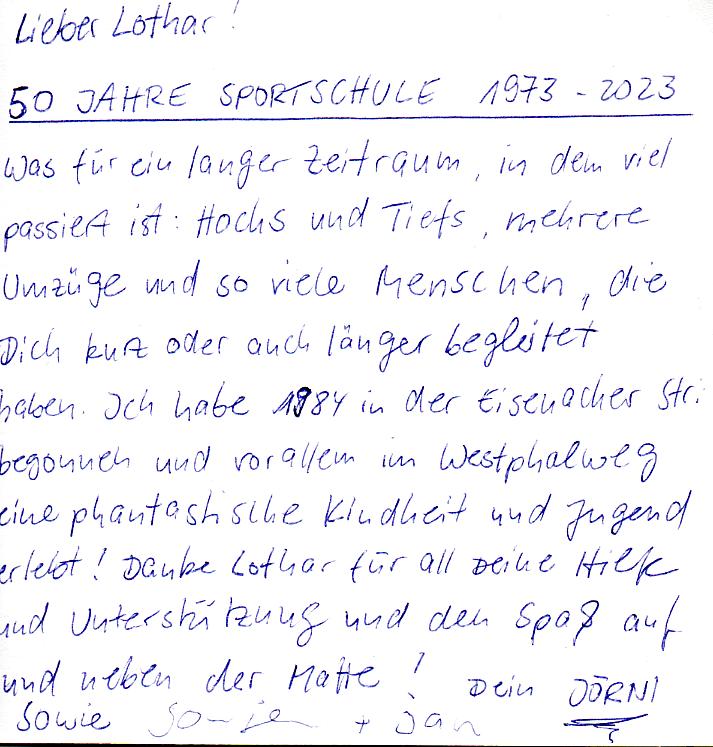 Lieber Lothar!
50 JAHRE SPORTSCHULE 1973 - 2023
Was für ein langer Zeitraum, in dem viel
passiert ist: Hochs und Tiefs, mehrere
Umzüge und so viele Menschen, die
Dich kurz oder auch länger begleitet
haben. Ich habe 1984 in der Eisenacher Str.
begonnen und vorallem im Westphalweg
eine phantastische Kindheit und Jugend
erlebt! Danke Lothar für all Deine Hilfe
und Unterstützung und den Spaß auf
und neben der Matte! Dein JÖRNI
Sowie + Jan